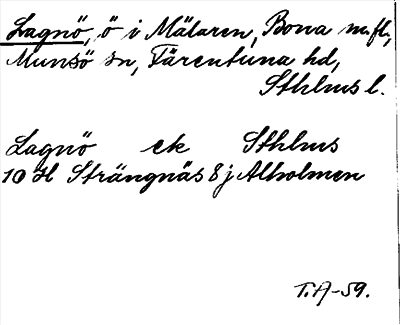 Lagnö, ö i Mälaren, Bona m.fl.,
Munsö sn, Färentuna hd,
Sthlms l.
Lagnö ek Sthlms
10 H Strängnäs 8 j Alholmen
T.A-59.